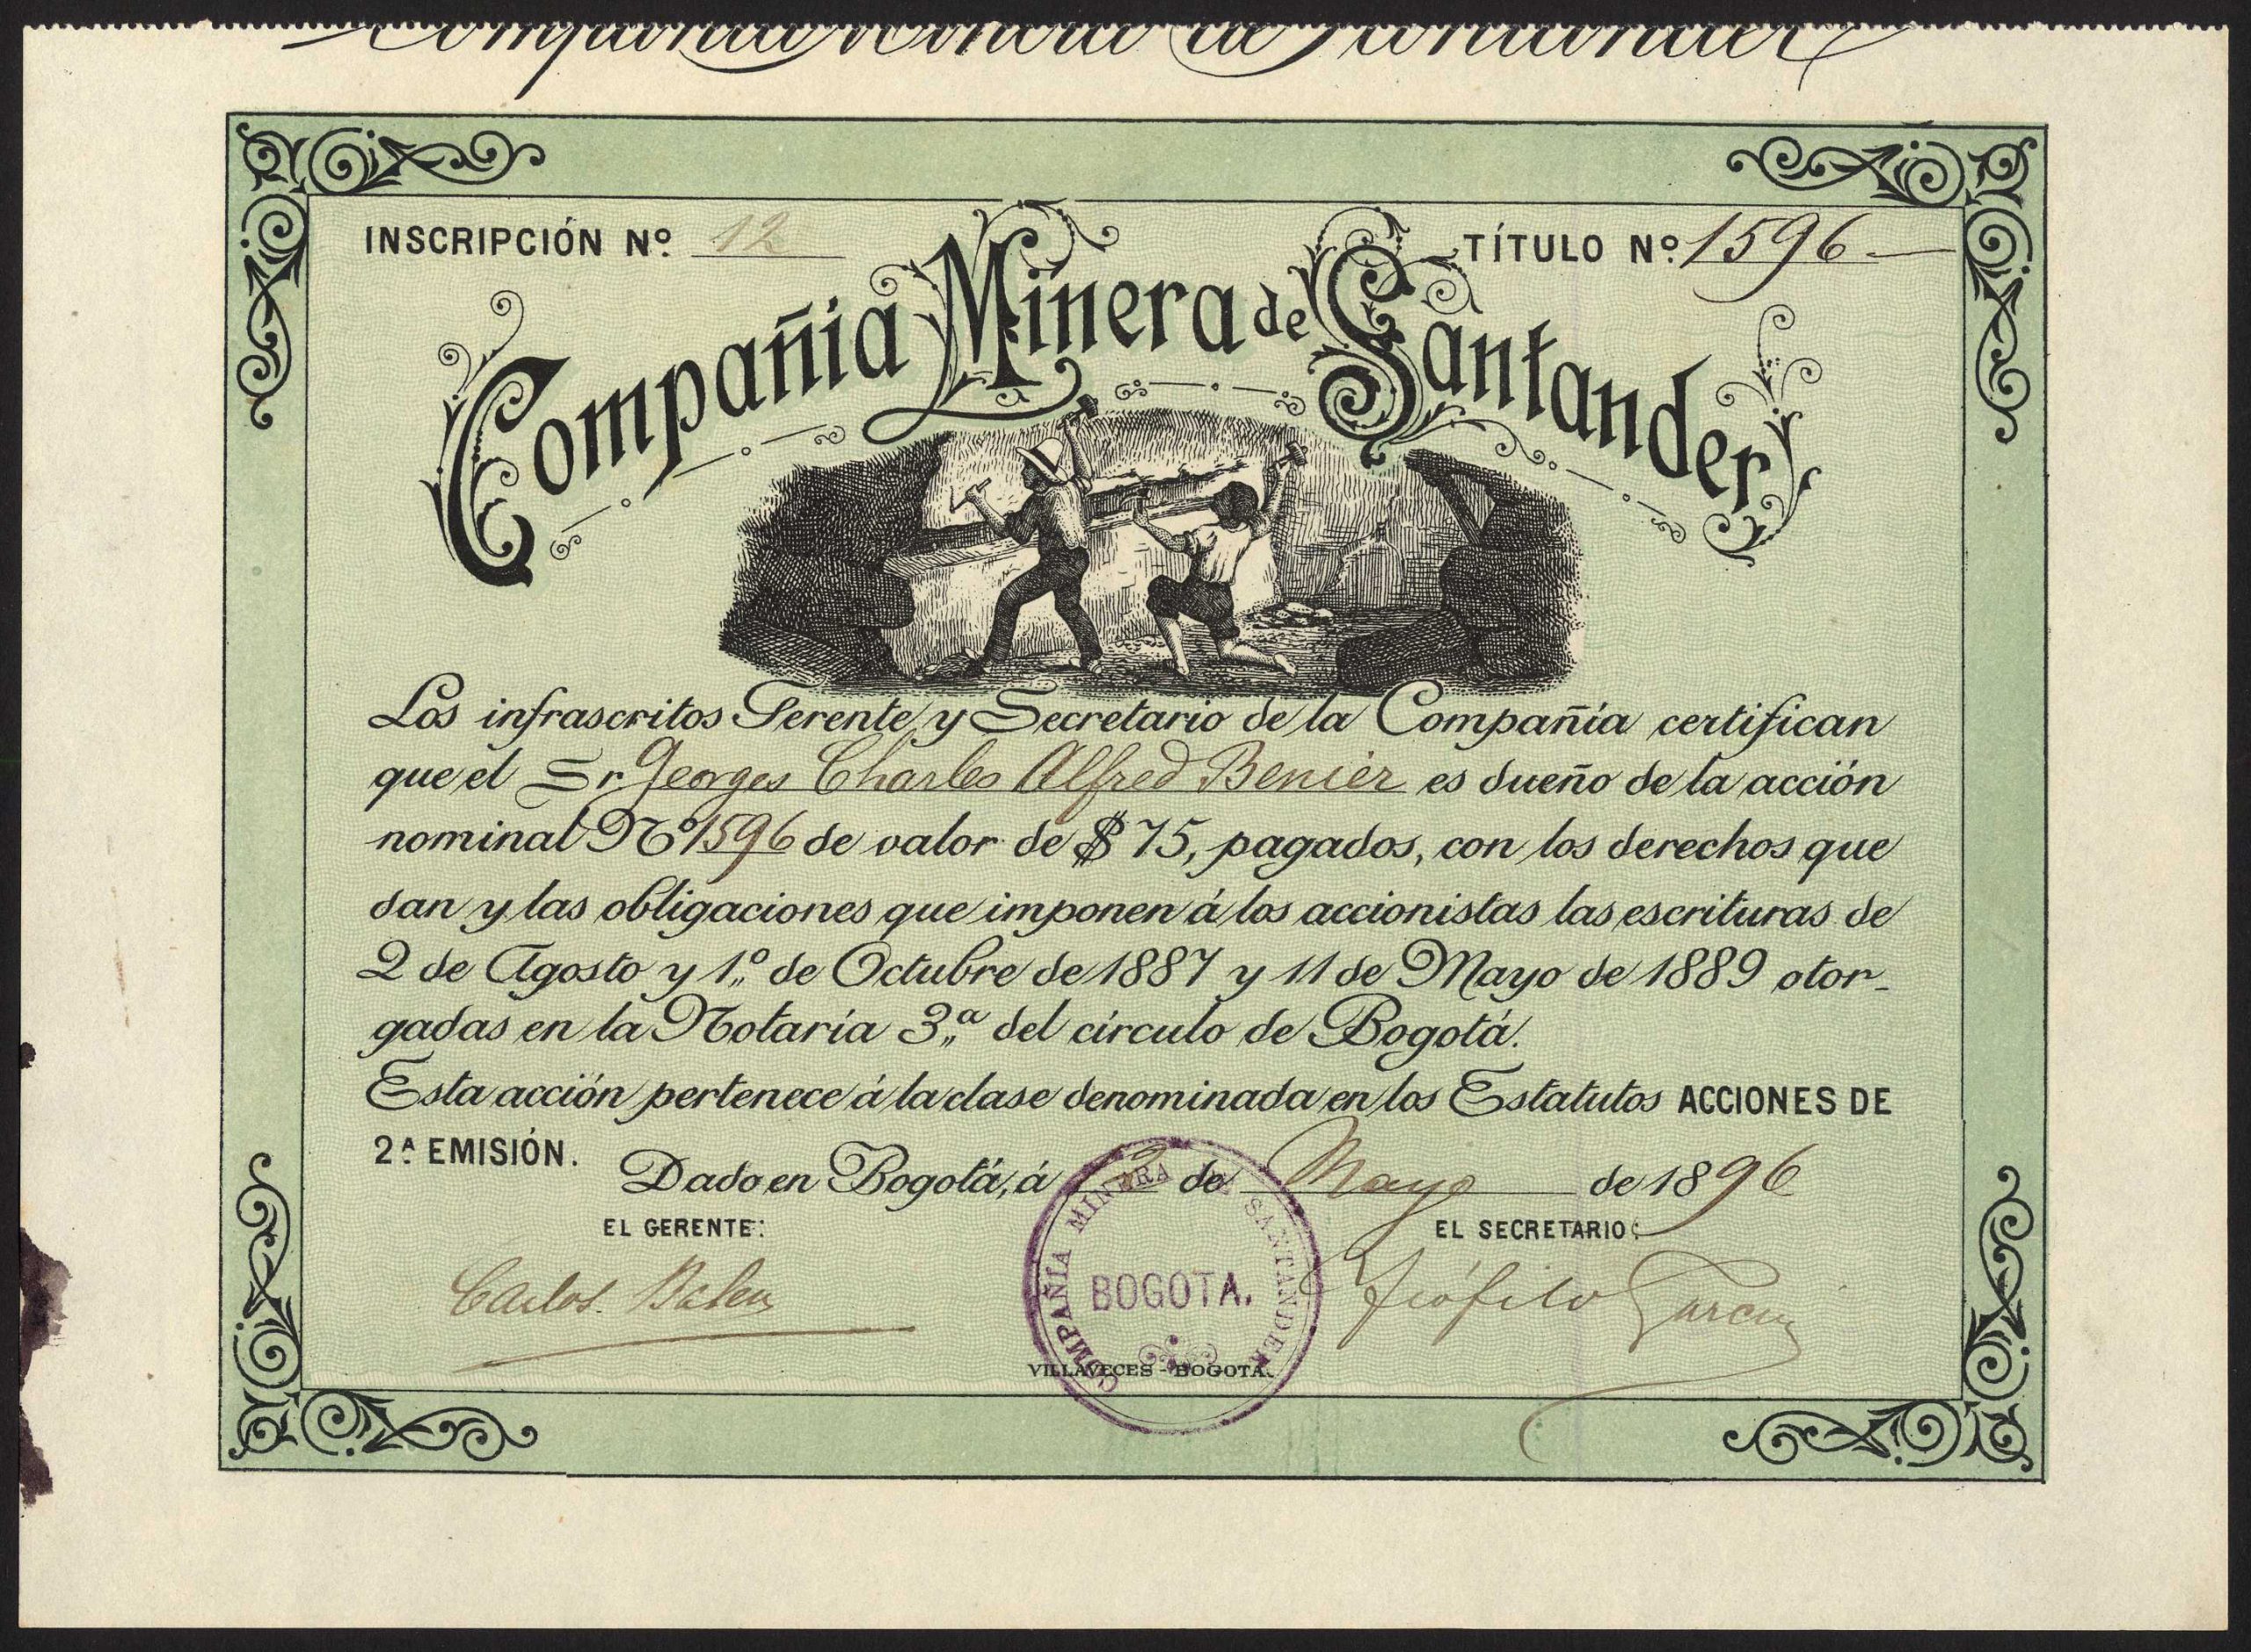 Compañia Minera de Santander
INSCRIPCIÓN Nº 12
TÍTULO Nº 1596
Compañia Minera de Santander
Los infrascritos Gerente y Secretario de la Compañia certifican
que el Sr. Georges Charles Alfred Benier es dueño de la acción
nominal Nº 1596 de valor de $ 75, pagados, con los derechos que
dan y las obligaciones que imponen á los accionistas las escrituras de
2 de Agosto y 1º de Octubre de 1887 y 11 de Mayo de 1889 otor-
gadas en la Notaría 3ª del círculo de Bogotá.
Esta acción pertenece á la clase denominada en los Estatutos ACCIONES DE
2ª EMISIÓN.
Dado en Bogotá, á 2 de Mayo de 1896
EL GERENTE:
EL SECRETARIO:
Carlos
Teófilo García
COMPAÑÍA MINERA DE SANTANDER
BOGOTA.
VILLAVECES - BOGOTÁ.